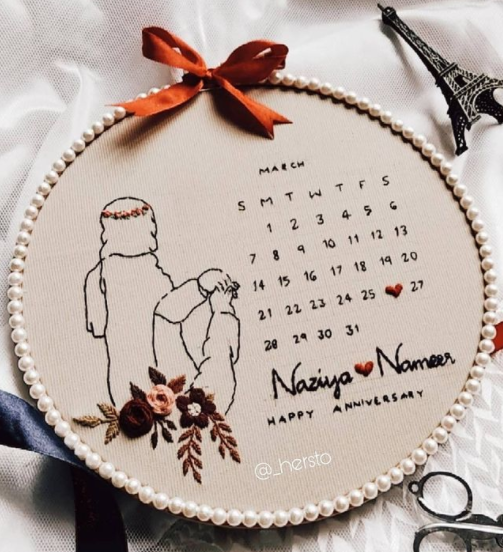 MARCH
S M T W T F S
1 2 3 4 5 6
7 8 9 10 11 12 13
14 15 16 17 18 19 20
21 22 23 24 25 27
28 29 30 31
Naziya Nameer
HAPPY ANNIVERSARY
@_hersto